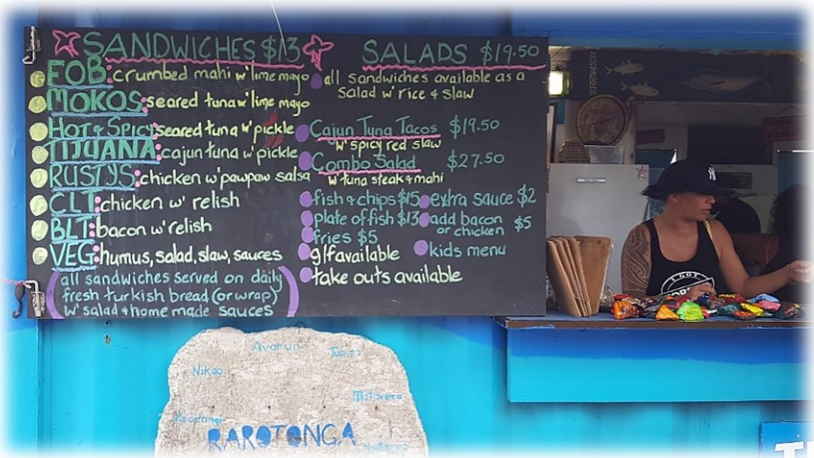 SANDWICHES $13
FOB: crumbed mahi w' lime mayo
MOKOS: seared tuna w' lime mayo
HOT & SPICY: seared tuna w' pickle
TIJUANA: cajun tuna w' pickle
RUSTYS: chicken w' pawpaw salsa
CLT: chicken w' relish
BLT: bacon w' relish
VEG: humus, salad, slaw, sauces
(all sandwiches served on daily
fresh turkish bread (or wrap)
w' salad & home made sauces)
SALADS $19.50
all sandwiches available as a
Salad w' rice & slaw
Cajun Tuna Tacos $19.50
w' spicy red slaw
Combo Salad $27.50
w' tuna steak & mahi
fish & chips $15
plate of fish $13
fries $5
g/f available
take outs available
extra sauce $2
add bacon
or chicken $5
kids menu
Avarua
Nikao
RAROTONGA